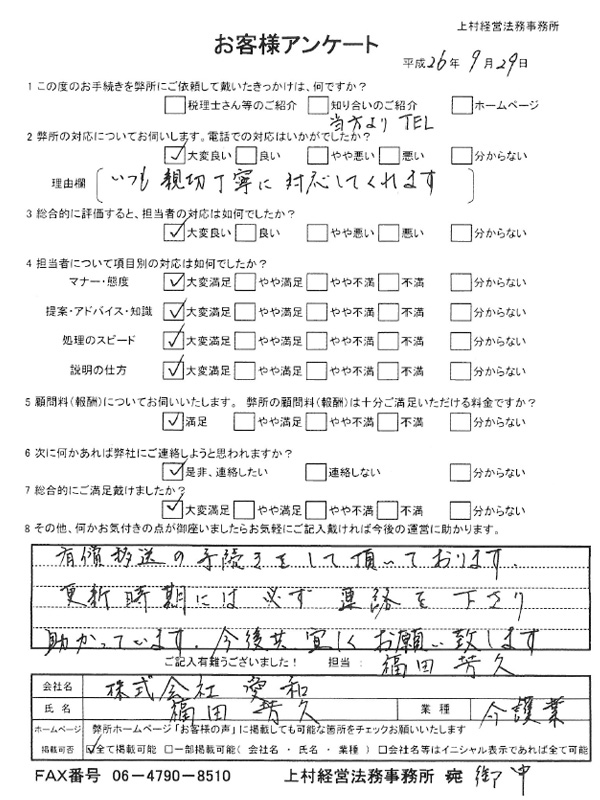 上村経営法務事務所
お客様アンケート
平成26年 9月29日
1 この度のお手続きを弊所にご依頼して戴いたきっかけは、何ですか?
□税理士さん等のご紹介 □知り合いのご紹介 □ホームページ
当方よりTEL
2 弊所の対応についてお伺いします。電話での対応はいかがでしたか?
☑大変良い □良い □やや悪い □悪い □分からない
理由欄 いつも親切丁寧に対応してくれます
3 総合的に評価すると、担当者の対応は如何でしたか?
☑大変良い □良い □やや悪い □悪い □分からない
4 担当者について項目別の対応は如何でしたか?
マナー・態度 ☑大変満足 □やや満足 □やや不満 □不満 □分からない
提案・アドバイス・知識 ☑大変満足 □やや満足 □やや不満 □不満 □分からない
処理のスピード ☑大変満足 □やや満足 □やや不満 □不満 □分からない
説明の仕方 ☑大変満足 □やや満足 □やや不満 □不満 □分からない
5 顧問料(報酬)についてお伺いいたします。 弊所の顧問料(報酬)は十分ご満足いただける料金ですか?
☑満足 □やや満足 □やや不満 □不満 □分からない
6 次に何かあれば弊社にご連絡しようと思われますか?
☑是非、連絡したい □連絡しない □分からない
7 総合的にご満足戴けましたか?
☑大変満足 □やや満足 □やや不満 □不満 □分からない
8 その他、何かお気付きの点が御座いましたらお気軽にご記入戴ければ今後の運営に助かります。
有償移送の手続きをして頂いております.
更新時期には必ず連絡を下さり
助かっています.今後共宜しくお願い致します
ご記入有難うございました! 担当: 福田芳久
会社名 株式会社 愛和
氏名 福田芳久 業種 介護業
ホームページ 弊所ホームページ「お客様の声」に掲載しても可能な箇所をチェックお願いいたします
掲載可否 ☑全て掲載可能 □一部掲載可能( 会社名 ・ 氏名 ・ 業種 ) □会社名等はイニシャル表示であれば全て可能
FAX番号 06-4790-8510 上村経営法務事務所 宛 御中